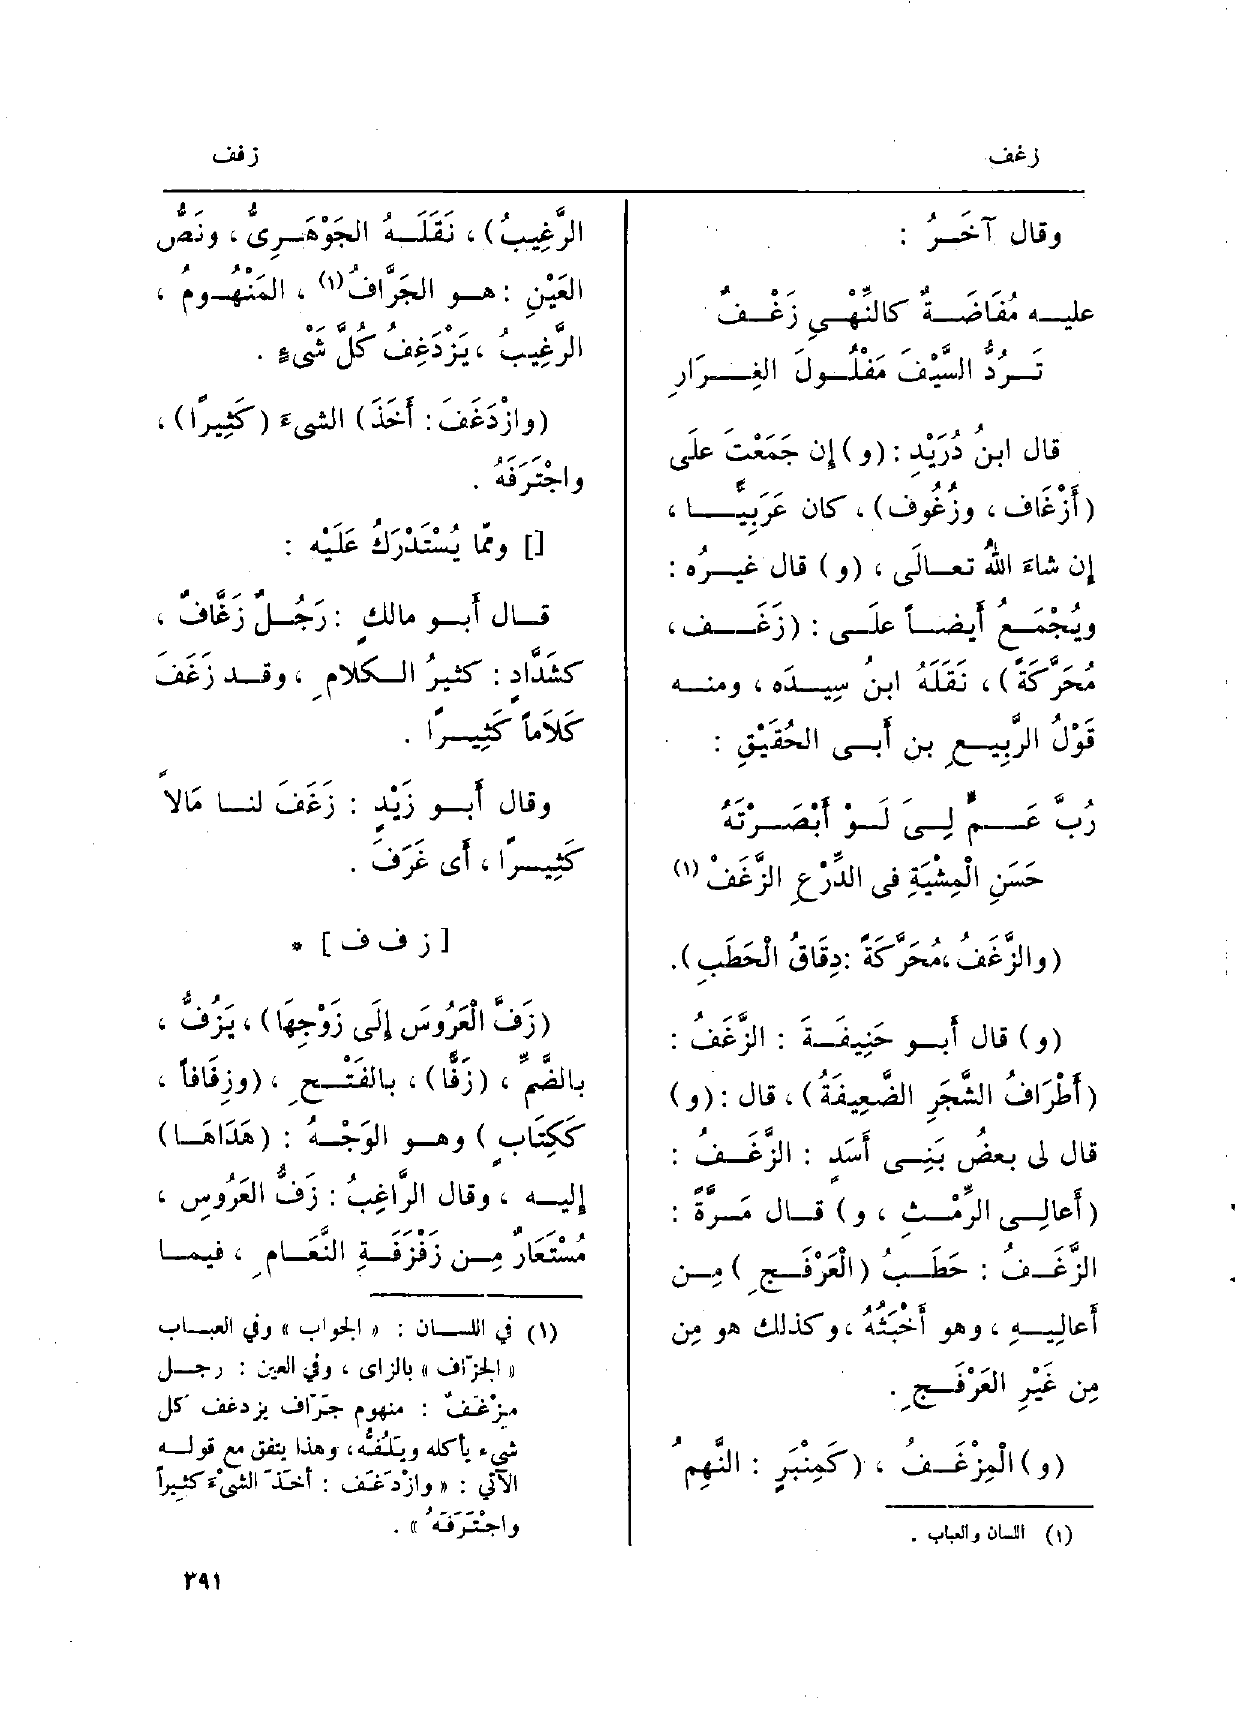 زغف
زفف
وقال آخَرُ :
عليه مُفَاضَةٌ كالنِّهْىِ زَغْفٌ
تَرُدُّ السَّيْفَ مَفْلُولَ الغِرَارِ
قال ابنُ دُرَيْدٍ : (و) إن جَمَعْتَ علَى
(أَزْغَاف ، وزُغُوف) ، كان عَرَبِيًّا ،
إن شاءَ اللهُ تعالَى ، (و) قال غيرُه :
ويُجْمَعُ أَيضاً علَى : (زَغَف ،
مُحَرَّكَةً) ، نَقَلَهُ ابنُ سِيدَه ، ومنه
قَوْلُ الرَّبِيعِ بن أَبى الحُقَيْقِ :
رُبَّ عَمٍّ لِىَ لَوْ أَبْصَرْتَهُ
حَسَنِ الْمِشْيَةِ فى الدِّرْعِ الزَّغَفْ (١)
(والزَّغَفُ ، مُحَرَّكَةً : دِقَاقُ الْحَطَبِ).
(و) قال أَبو حَنِيفَةَ : الزَّغَفُ :
(أَطْرَافُ الشَّجَرِ الضَّعِيفَةُ) ، قال : (و)
قال لى بعضُ بَنِى أَسَدٍ : الزَّغَفُ :
(أَعالِى الرِّمْثِ ، و) قال مَرَّةً :
الزَّغَفُ : حَطَبُ (الْعَرْفَجِ) مِن
أَعالِيهِ ، وهو أَخْبَثُهُ ، وكذلك هو مِن
مِن غَيْرِ العَرْفَجِ .
(و) الْمِزْغَفُ ، (كَمِنْبَرٍ : النَّهِمُ
(١) اللسان والعباب .
الرَّغِيبُ) ، نَقَلَهُ الجَوْهَرِىُّ ، ونَصُّ
العَيْنِ : هو الجَرَّافُ(١) ، المَنْهُومُ ،
الرَّغِيبُ ، يَزْدَغِفُ كُلَّ شَىْءٍ .
(وازْدَغَفَ : أَخَذَ) الشىءَ (كَثِيرًا) ،
واجْتَرَفَهُ .
[] وممّا يُسْتَدْرَكُ عَلَيْه :
قال أَبو مالكٍ : رَجُلٌ زَغَّافٌ ،
كشَدَّادٍ : كثيرُ الكلامِ ، وقد زَغَفَ
كَلاَماً كَثِيرًا .
وقال أَبو زَيْدٍ : زَغَفَ لنا مَالاً
كَثِيرًا ، أَى غَرَفَ .
[ ز ف ف ] *
(زَفَّ الْعَرُوسَ إِلَى زَوْجِهَا) ، يَزُفُّ ،
بالضَّمِّ ، (زَفًّا) ، بالفَتْحِ ، (وزِفَافاً ،
ككِتَابٍ) وهو الوَجْهُ : (هَدَاهَا)
إليه ، وقال الرَّاغِبُ : زَفُّ العَرُوسِ ،
مُسْتَعَارٌ مِن زَفْزَفَةِ النَّعَامِ ، فيما
(١) في اللسان : « الجواب » وفي العباب
« الجزّاف » بالزاى ، وفي العين : رجل
مِزْغَفٌ : منهوم جَرّاف يزدغف كل
شيء يأكله ويَلُفُّه ، وهذا يتفق مع قوله
الآتي : « وازْدَغَف : أخَذَ الشيْءَ كثيراً
واجْتَرَفَهُ » .
٣٩١